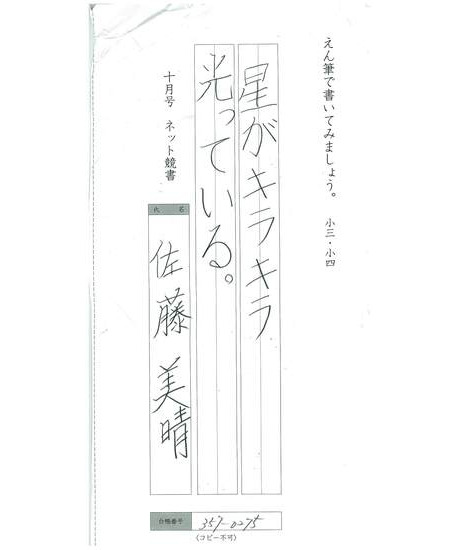 えん筆で書いてみましょう。 小三・小四
星がキラキラ
光っている。
十月号 ネット競書
氏名
佐藤美晴
台帳番号 357-0275
(コピー不可)